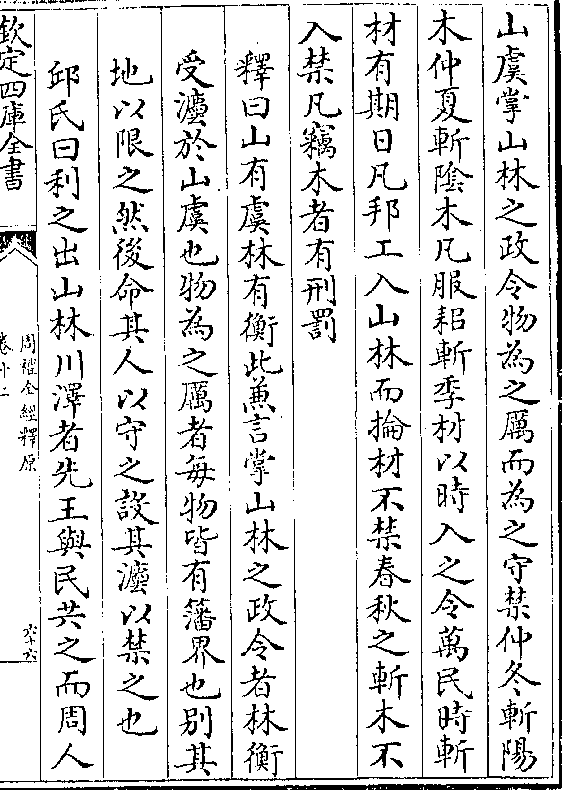 山虞掌山林之政令物為之厲而為之守禁仲冬斬陽
木仲夏斬陰木凡服耜斬季材以時入之令萬民時斬
材有期日凡邦工入山林而掄材不禁春秋之斬木不
入禁凡竊木者有刑罰
釋曰山有虞林有衡此兼言掌山林之政令者林衡
受灋於山虞也物為之厲者毎物皆有籓界也别其
地以限之然後命其人以守之設其灋以禁之也
邱氏曰利之出山林川澤者先王與民共之而周人
欽定四庫全書
周禮全經釋原
卷十二
六十六